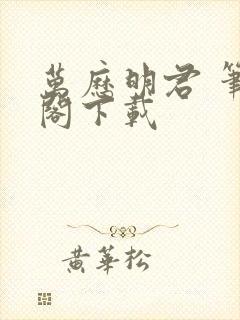 萬歷明君 筆
閣下載
黃華松